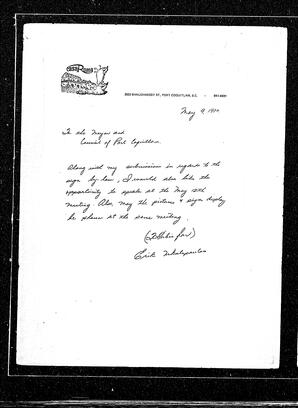 2603 SHAUGHNESSY ST., PORT COQUITLAM, B.C.
May 9, 19
To the Mayor and
Council of Port Coquitlam
Along with my submission in regards to the
sign by-law, I would also like the
opportunity to speak at the May 12th
meeting. Also, may the pictures & sign display
be shown at the same meeting.